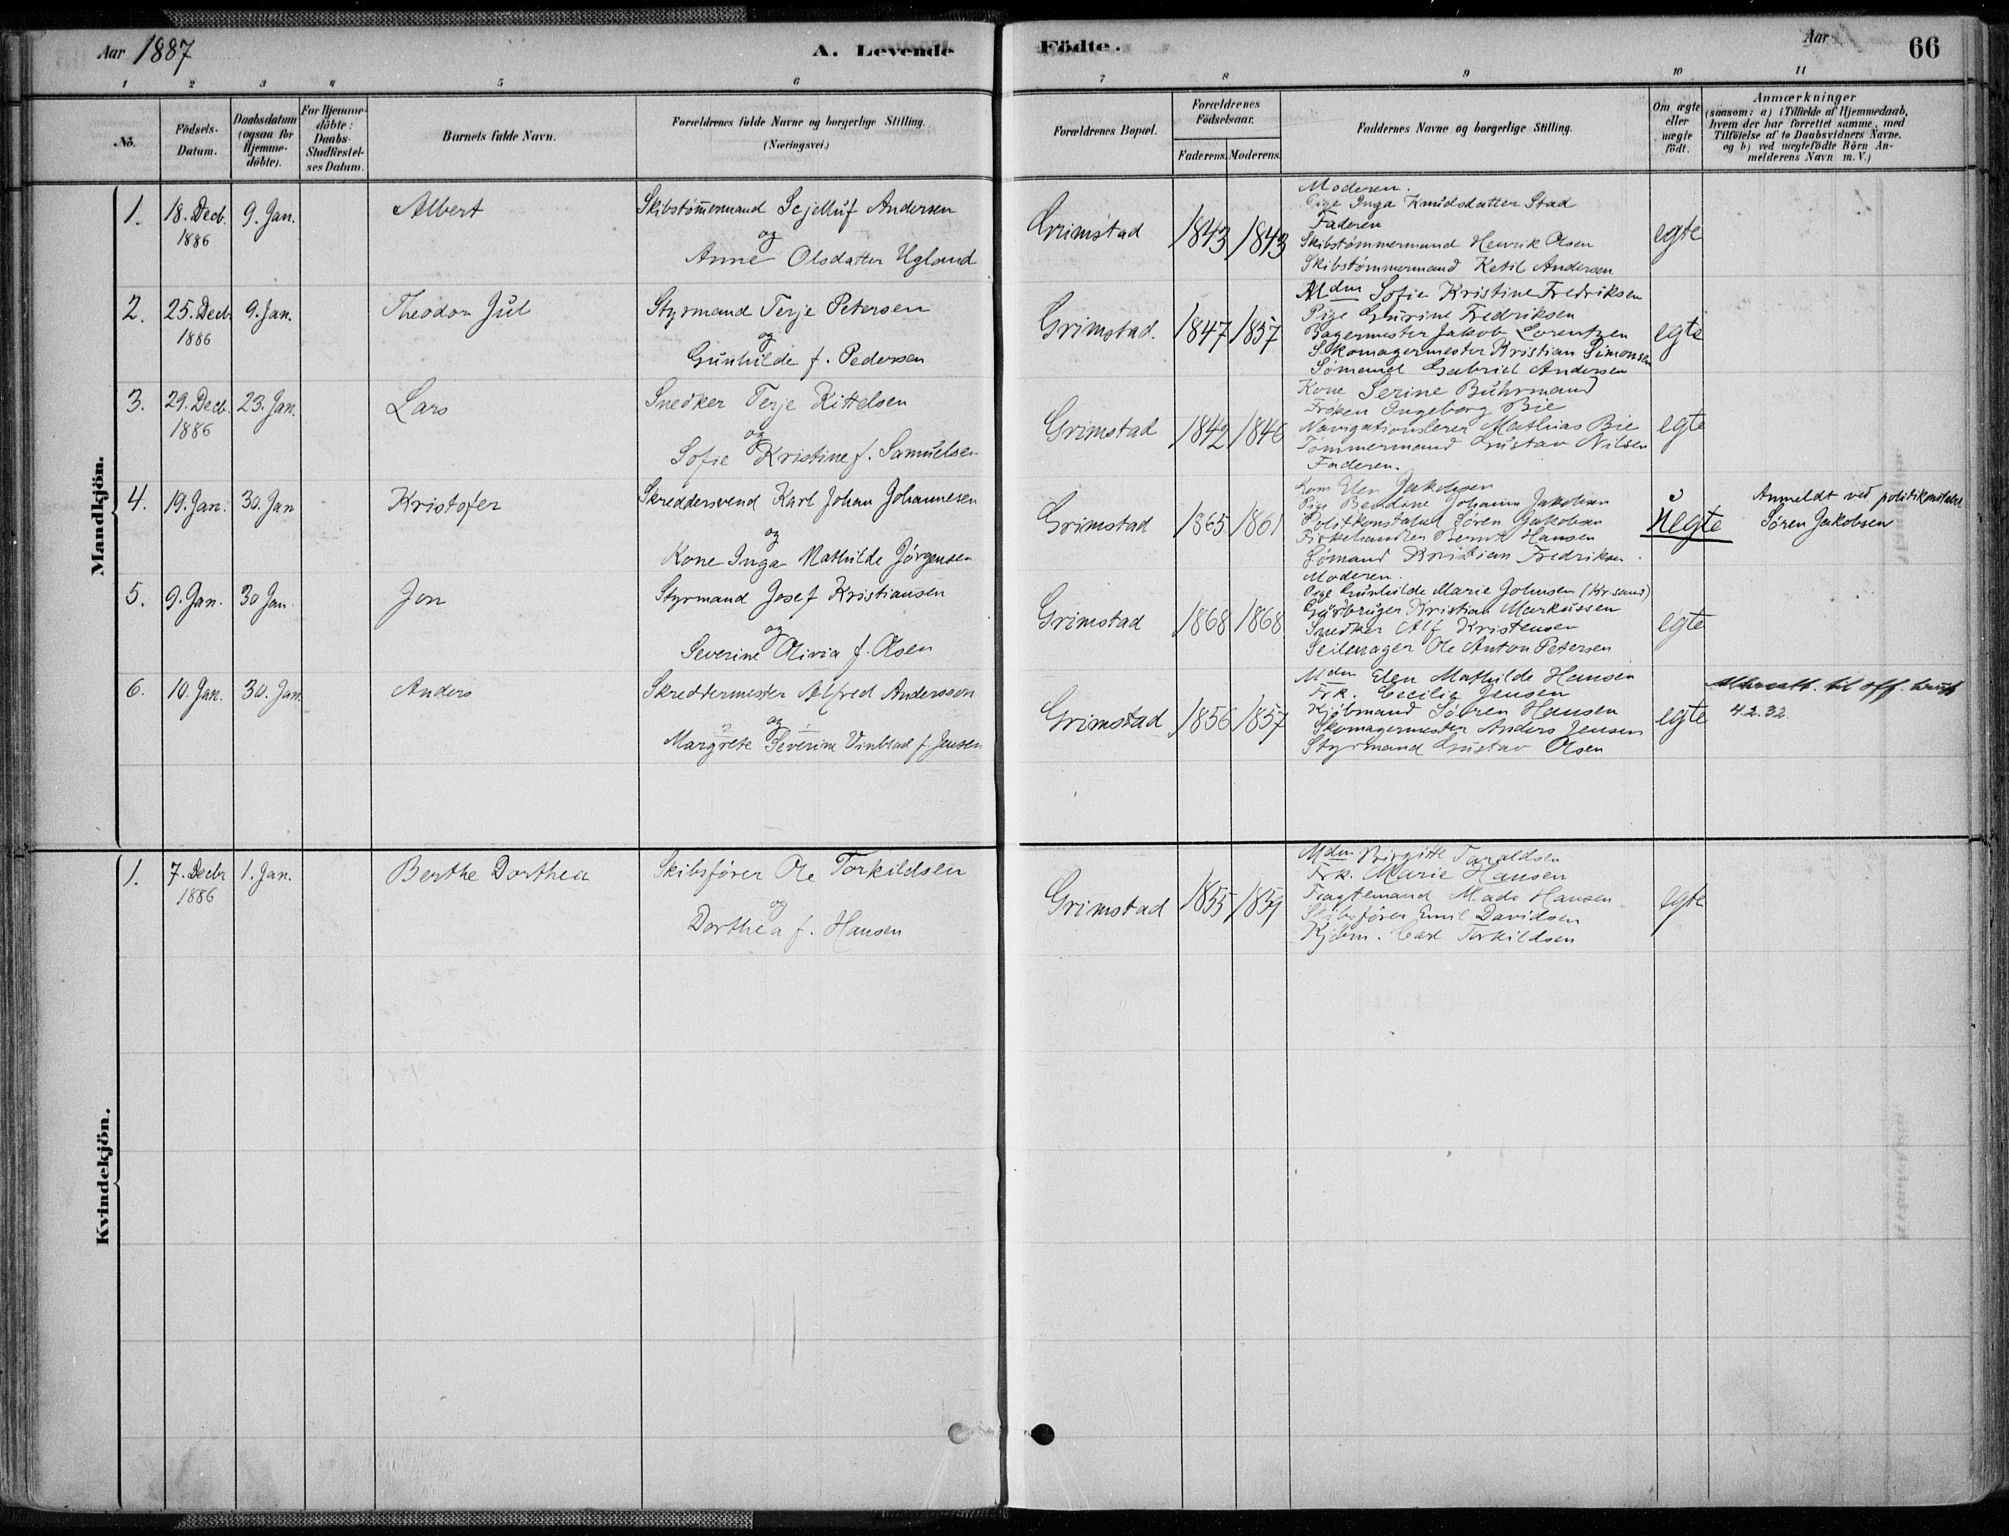 Aar 1887
A. Levende Födte.
Aar
66
1 2 3 4 5 6 7 8 9 10 11
No.
Födsels-Datum.
Daabsdatum (ogsaa for Hjemme-döbte).
For Hjemme-döbte: Daabs-Stadfæstel-ses Datum.
Barnets fulde Navn.
Forældrenes fulde Navne og borgerlige Stilling. (Næringsvei.)
Forældrenes Bopæl.
Forældrenes Födselsaar.
Faderens. Moderens.
Faddernes Navne og borgerlige Stilling.
Om ægte eller uægte født.
Anmærkninger
(saasom: a) i Tilfælde af Hjemmedaab, hvem der har forrettet samme, med Tilföielse af to Daabsvidners Navne, og b) ved uægtefödte Börn An-melderens Navn m. V.)
Mandkjön.
1. 18. Decb. 1886 9. Jan. Albert
Skibstømmermand Andersen
og
Anne Olsdatter Ugland
Grimstad 1843 1843
Moderen.
Pige Inga Knudsdatter Stad
Faderen
Skibstømmermand Henrik Olsen
Skibstømmermand Ketil Andersen
egte
2. 25. Decb. 1886 9. Jan. Theodor Jul
Styrmand Terje Petersen
og
Gunhilde f. Pedersen
Grimstad. 1847 1857
Mdm Sofie Kristine Fredriksen
Pige Gurine Fredriksen
Bagermester Jakob Lorentzen
Skomagermester Kristian Simonsen
Sømand Gabriel Andersen
egte
3. 29. Decb. 1886 23. Jan. Lars
Snedker Terje Kittelsen
og
Sofie Kristine f. Samuelsen
Grimstad 1842 1846
Kone Serine Buhrmand
Frøken Ingeborg Bie
Navigationslerer Mathias Bie
Tømmermand Gustav Nilsen
Faderen.
egte
4. 19. Jan. 30. Jan Kristofer
Skreddersvend Karl Johan Johannesen
og
Kone Inga Mathilde Jørgensen
Grimstad 1865 1861
Kone Elen Jakobsen
Pige Johanne Jakobsen
Politikonstabel Søren Jakobsen
Fiskehandler Hansen
Sømand Kristian Fredriksen.
uegte
Anmeldt ved politikonstabel
Søren Jakobsen
5. 9. Jan. 30 Jan. Jon
Styrmand Josef Kristiansen
og
Severine Olivia f. Olsen
Grimstad 1868 1868
Moderen.
Pige Gunhilde Marie Johnsen (Kr.sand)
Gårdbruger Kristian Markussen
Snedker Alf Kristensen
Seilmager Ole Anton Petersen
egte
6. 10. Jan. 30. Jan. Anders
Skreddermester Alfred Andersson
og
Margrete Severine Vinblad f. Jensen
Grimstad 1856 1857
Mdm Elen Mathilde Hansen
Frk. Cecilie Jensen
Kjøbmand Søren Hansen
Skomagermester Anders Jensen
Styrmand Gustav Olsen
egte
til off. bruk
4.2.32.
Kvindekjön.
1. 7. Decbr 1886 1. Jan. Berthe Dorthea
Skibsfører Ole Torkildsen
og
Dorthea f. Hansen
Grimstad 1855 1859
Mdm Birgitte Taraldsen
Frk. Marie Hansen
Fragtemand Mads Hansen
Skibsfører Emil Davidsen
Kjøbm. Carl Torkildsen
egte